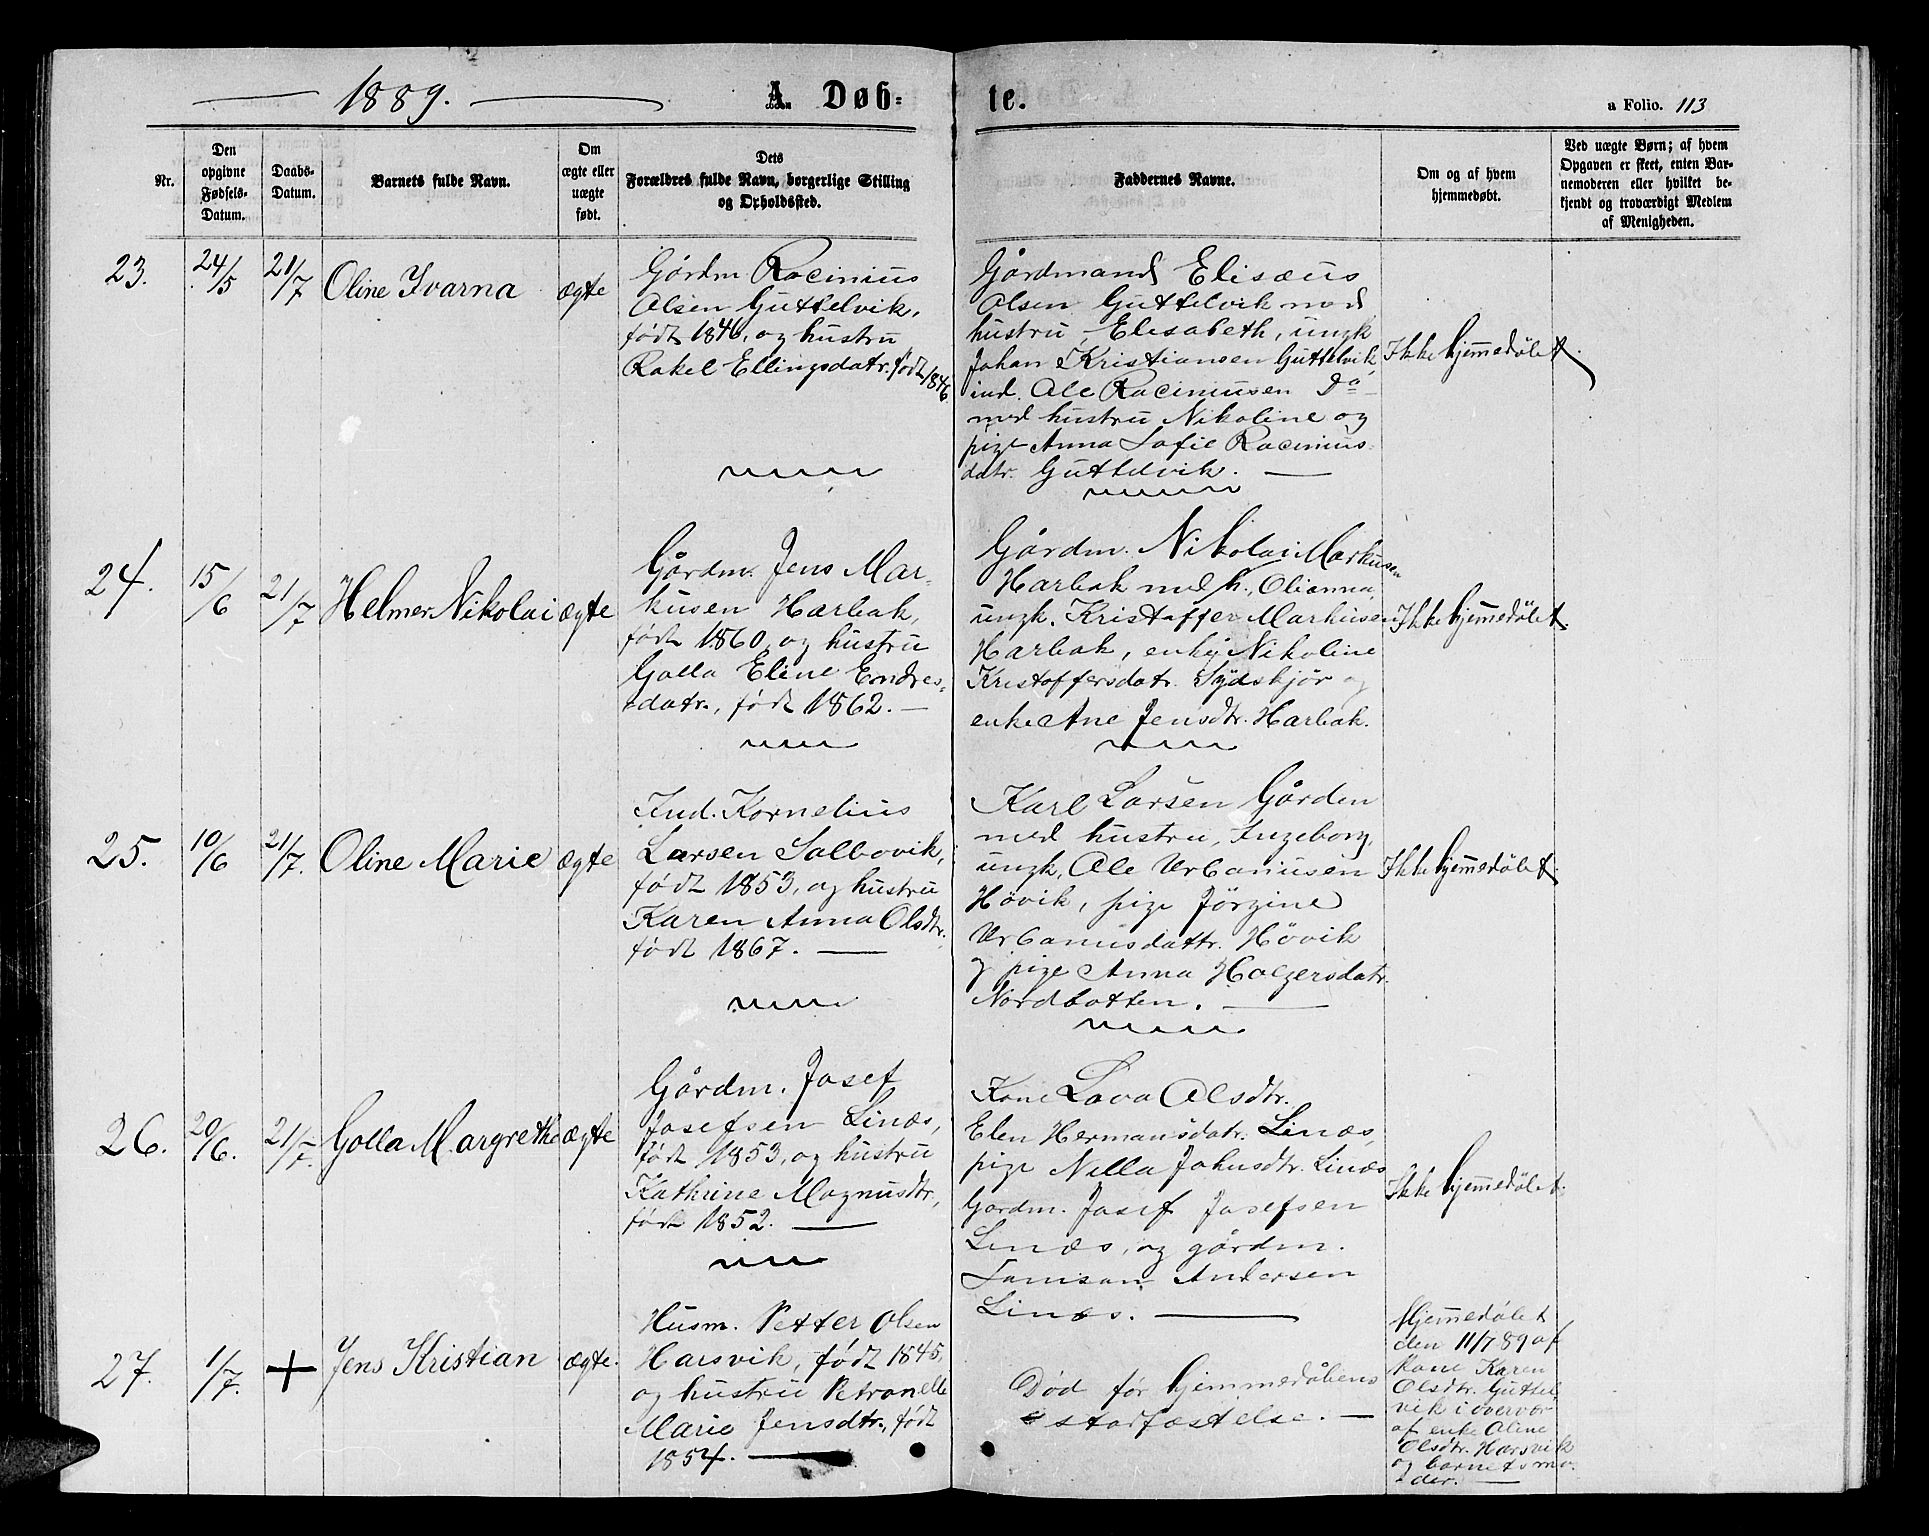 1889.
A. Døb-
te.
a Folio. 113
Nr.
Den
opgivne
Fødsels-
Datum.
Daabs-
Datum.
Barnets fulde Navn.
Om
ægte eller
uægte
født.
Dets
Forældres fulde Navn, borgerlige Stilling
og Opholdssted.
Faddernes Navne.
Om og af hvem
hjemmedøbt.
Ved uægte Børn; af hvem
Opgaven er skeet, enten Bar-
nemoderen eller hvilket be-
kjendt og troværdigt Medlem
af Menigheden.
23.
24/5
21/7
Oline Ivarna
ægte
Gårdm Racinius
Olsen Guttelvik,
født 1846, og hustru
Rakel Ellingsdatr. født 1846.
Gårdmand Elisæus
Olsen Guttelvik med
hustru, Elisabeth, ungk
Johan Kristiansen Guttelvik,
ind. Ole Raciniusen Do
med hustru Nikoline og
pige Anna Sofie Racinius-
datr. Guttelvik.
Ikke hjemmedøbt.
24.
15/6
21/7
Helmer Nikolai
ægte
Gårdm. Jens Mar-
kusen Harbak,
født 1860, og hustru
Golla Eline Endres-
datr., født 1862.
Gårdm. Nikolai Markusen
Harbak med h., Olianna,
ungk. Kristoffer Markusen
Harbak, enke Nikoline
Kristoffersdatr. Sydskjør og
enke Ane Jensdtr. Harbak.
Ikke hjemmedøbt.
25.
10/6
21/7.
Oline Marie
ægte
Ind. Kornelius
Larsen Salbovik,
født 1853, og hustru
Karen Anna Olsdtr.
født 1867.
Karl Larsen Gården
med hustru, Ingeborg,
ungk. Ole Urbaniusen
Høvik, pige Jörgine
Urbanusdattr. Høvik
og pige Anna Holgersdatr.
Nordbotten.
Ikke hjemmedøbt.
26.
20/6.
21/7.
Golla Margrethe
ægte
Gårdm. Josef
Josefsen Linæs,
født 1853, og hustru
Kathrine Magnusdtr,
født 1852.
Kone Lova Olsdtr.
Elen Hermansdatr. Linæs,
pige Nella Johnsdtr. Linæs
Gardm. Josef Josefsen
Linæs, og gårdm.
Andersen
Linæs.
Ikke hjemmedøbt.
27.
1/7.
+
Jens Kristian
ægte.
Husm. Petter Olsen
Harsvik, født 1845,
og hustru Petronelle
Marie Jensdtr., født
1854.
Død før hjemmedåbens
stadfæstelse.
Hjemmedøbt
den 11/7 89 af
kone Karen
Olsdtr. Guttel
vik i overvær
af enke Oline
Olsdtr. Harsvik
og barnets mo-
der.